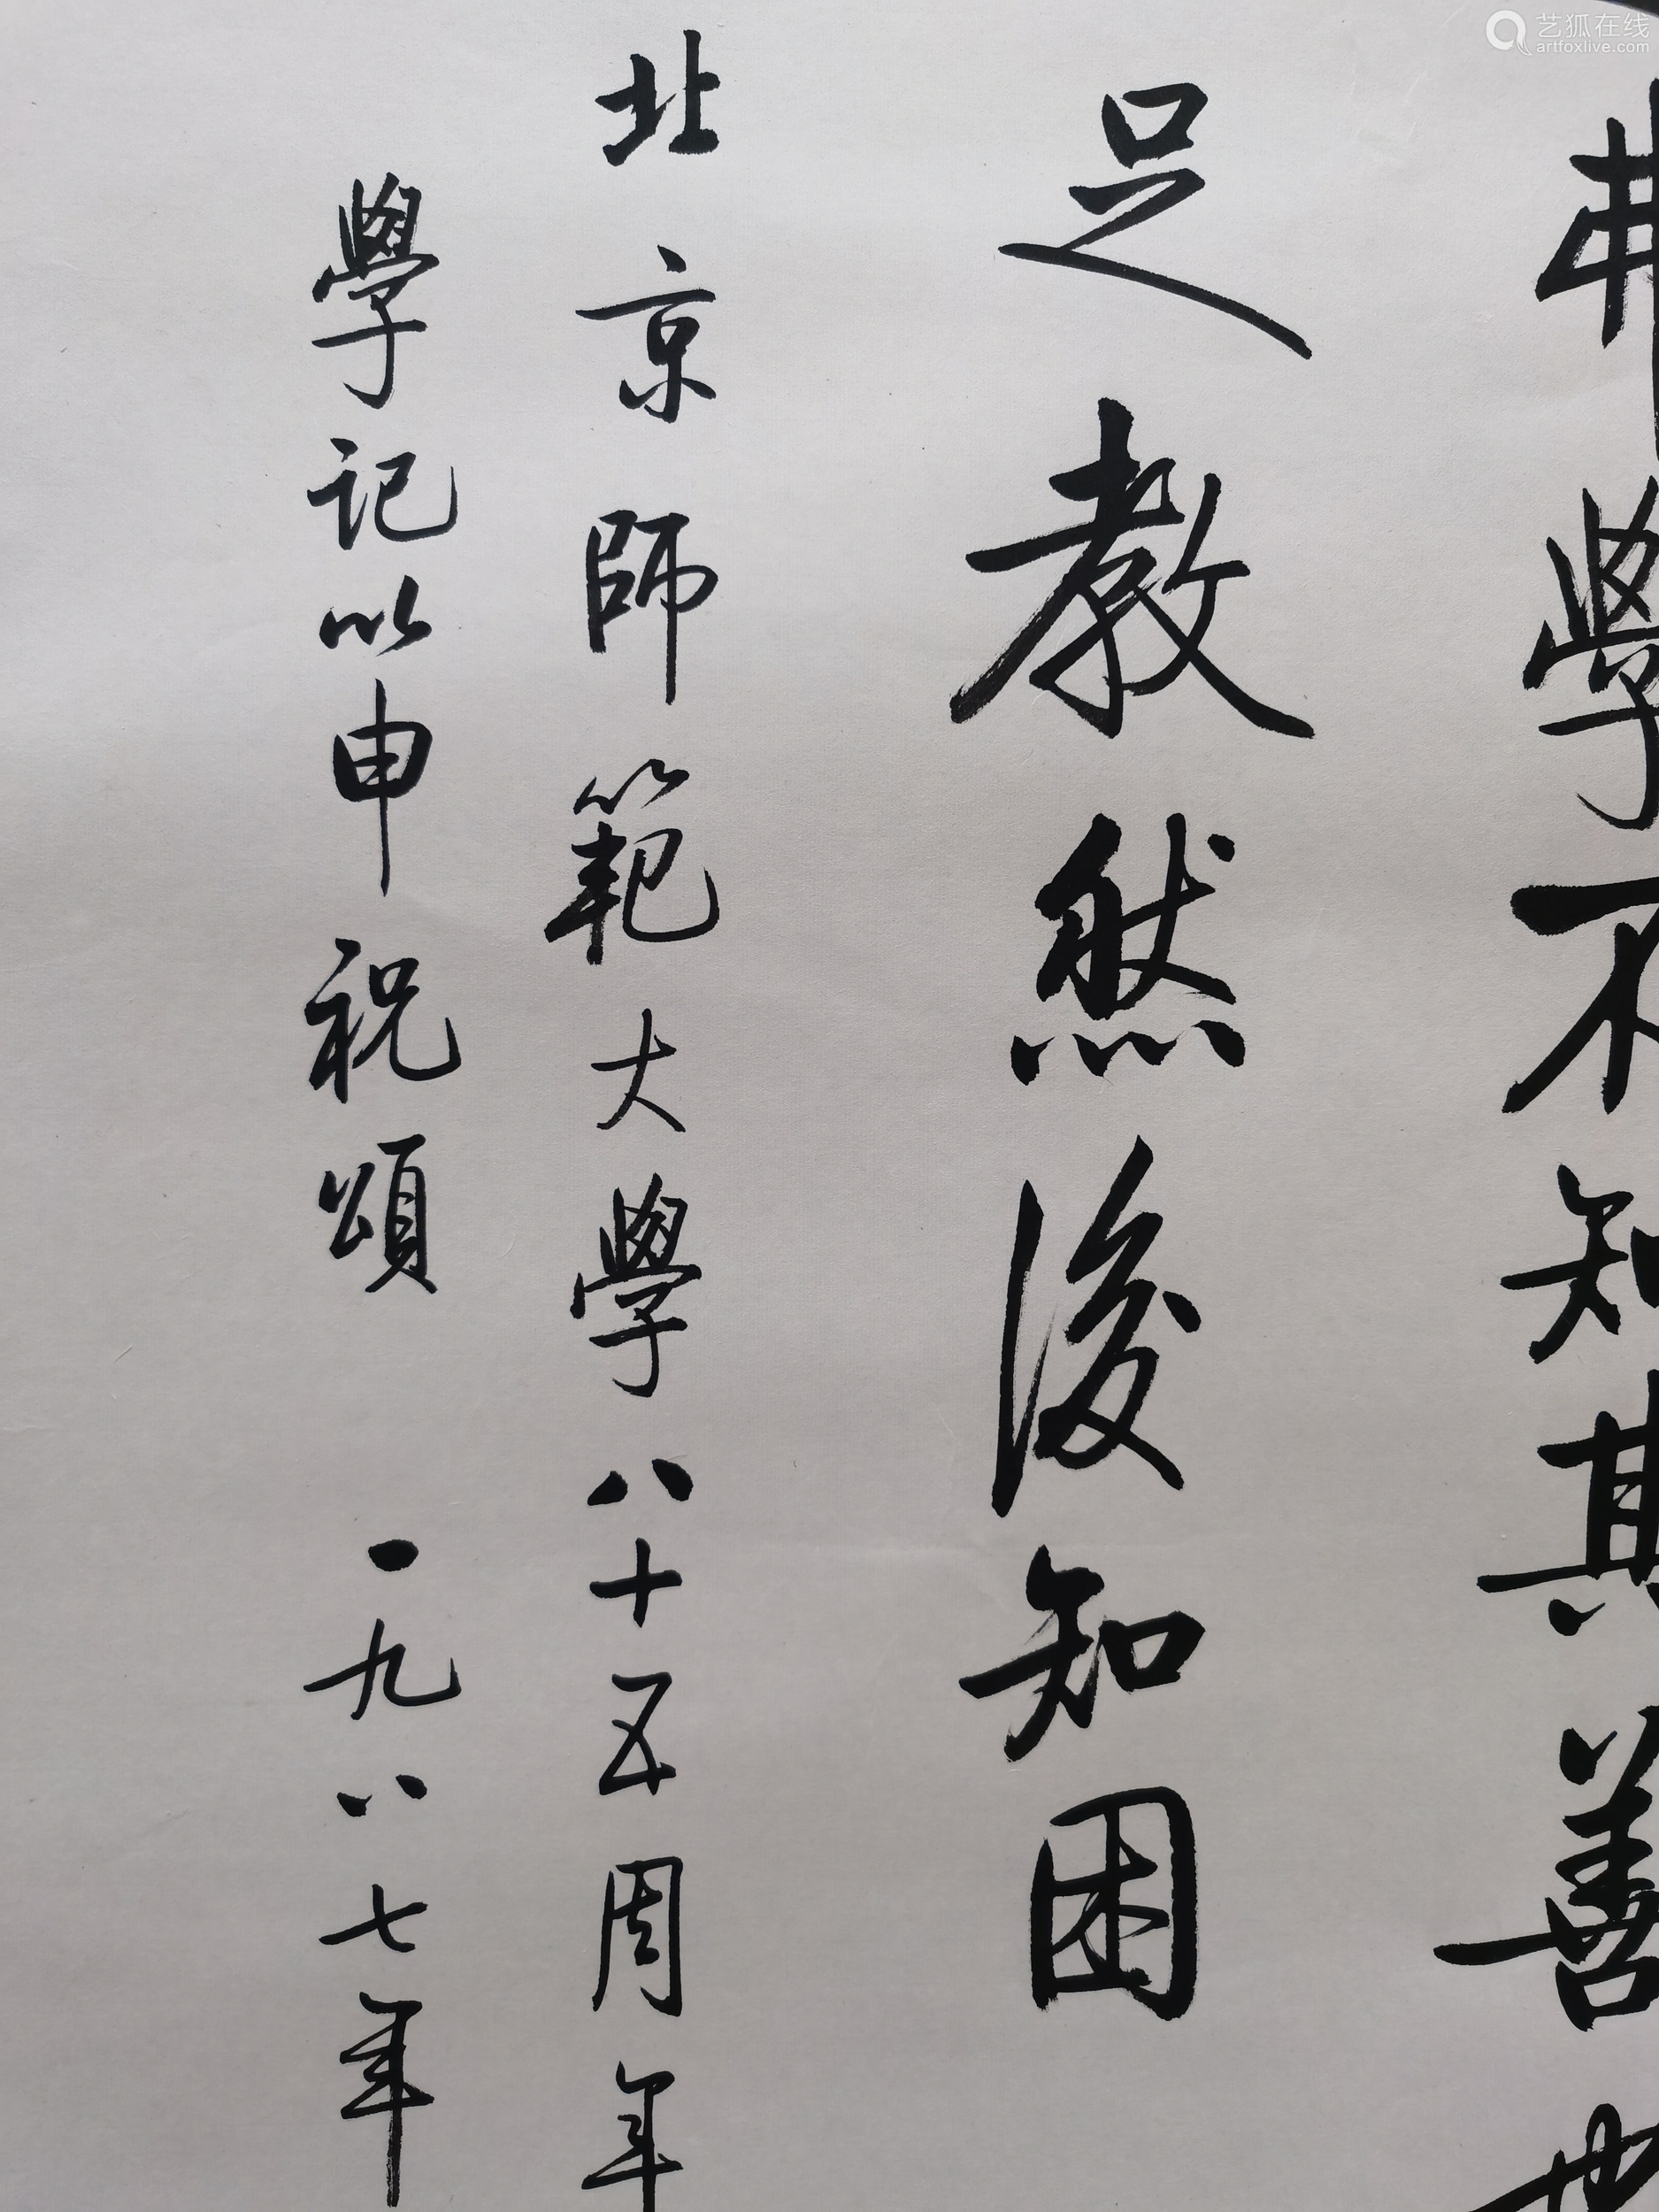 弗學不知其善也
足教然後知困
北京師範大學八十五周年
學記以申祝頌 一九八七年
艺狐在线
artfoxlive.com